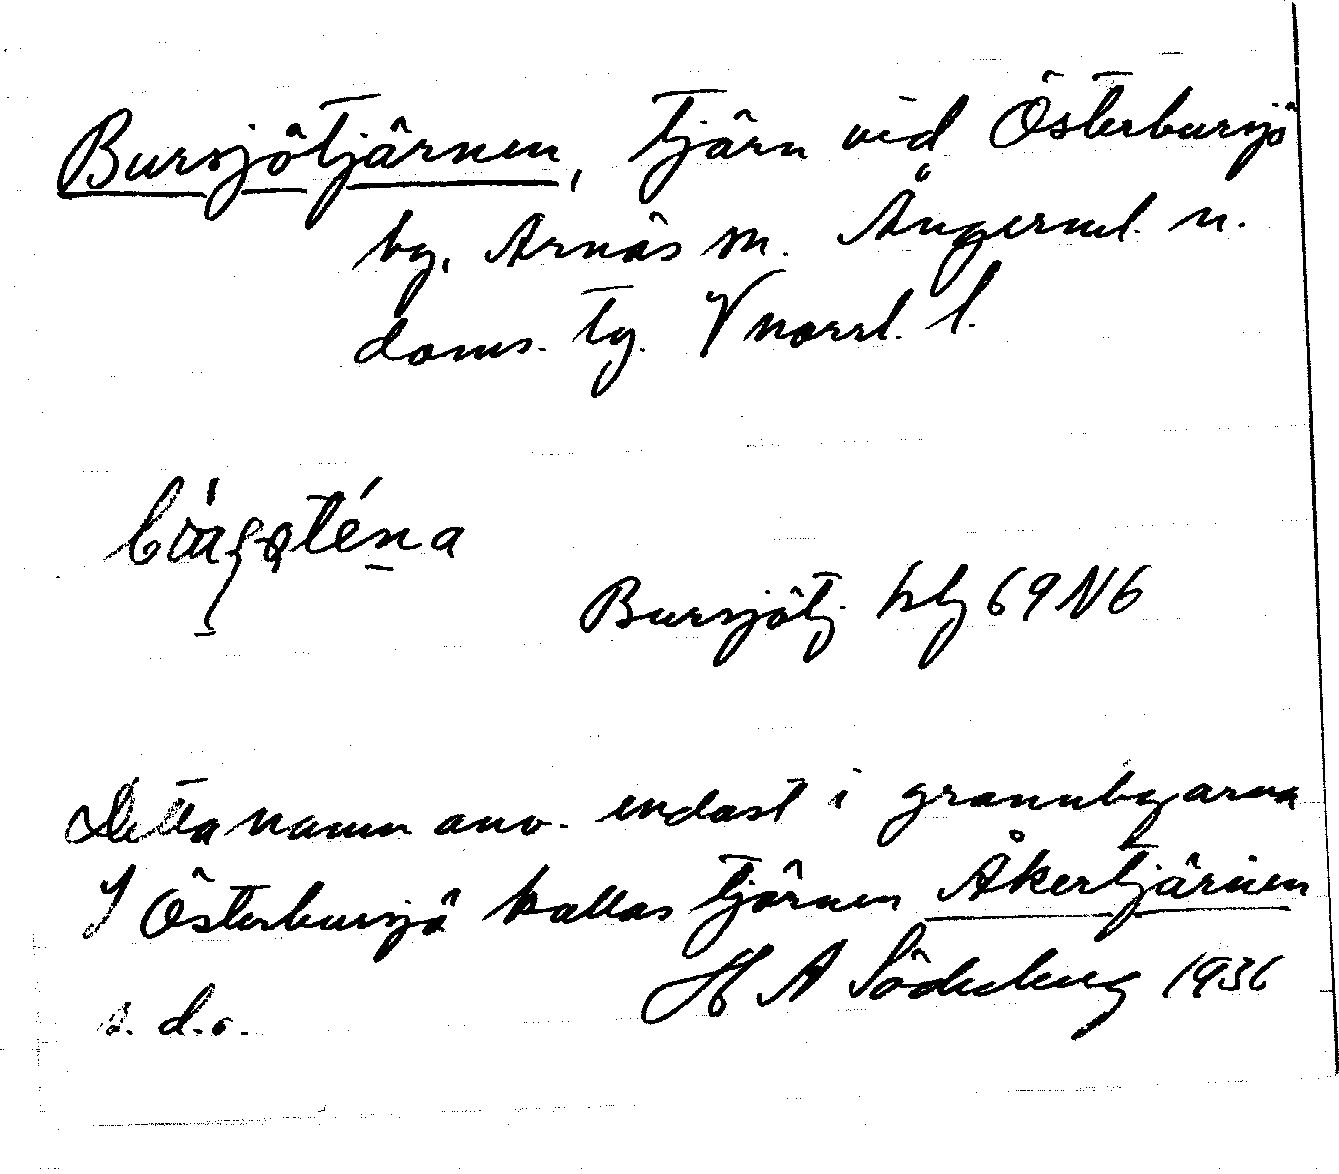 Bursjötjärnen, Tjärn vid Österbursjö
by, Arnäs sn. Ångerml. n.
doms. tg. Vnorrl. l.
Bursjötj. hbl 69 N6
Detta namn anv. endast i grannbyarna
I Österbursjö kallas tjärnen Åkertjärnen
s. d. o. H A Söderberg 1936